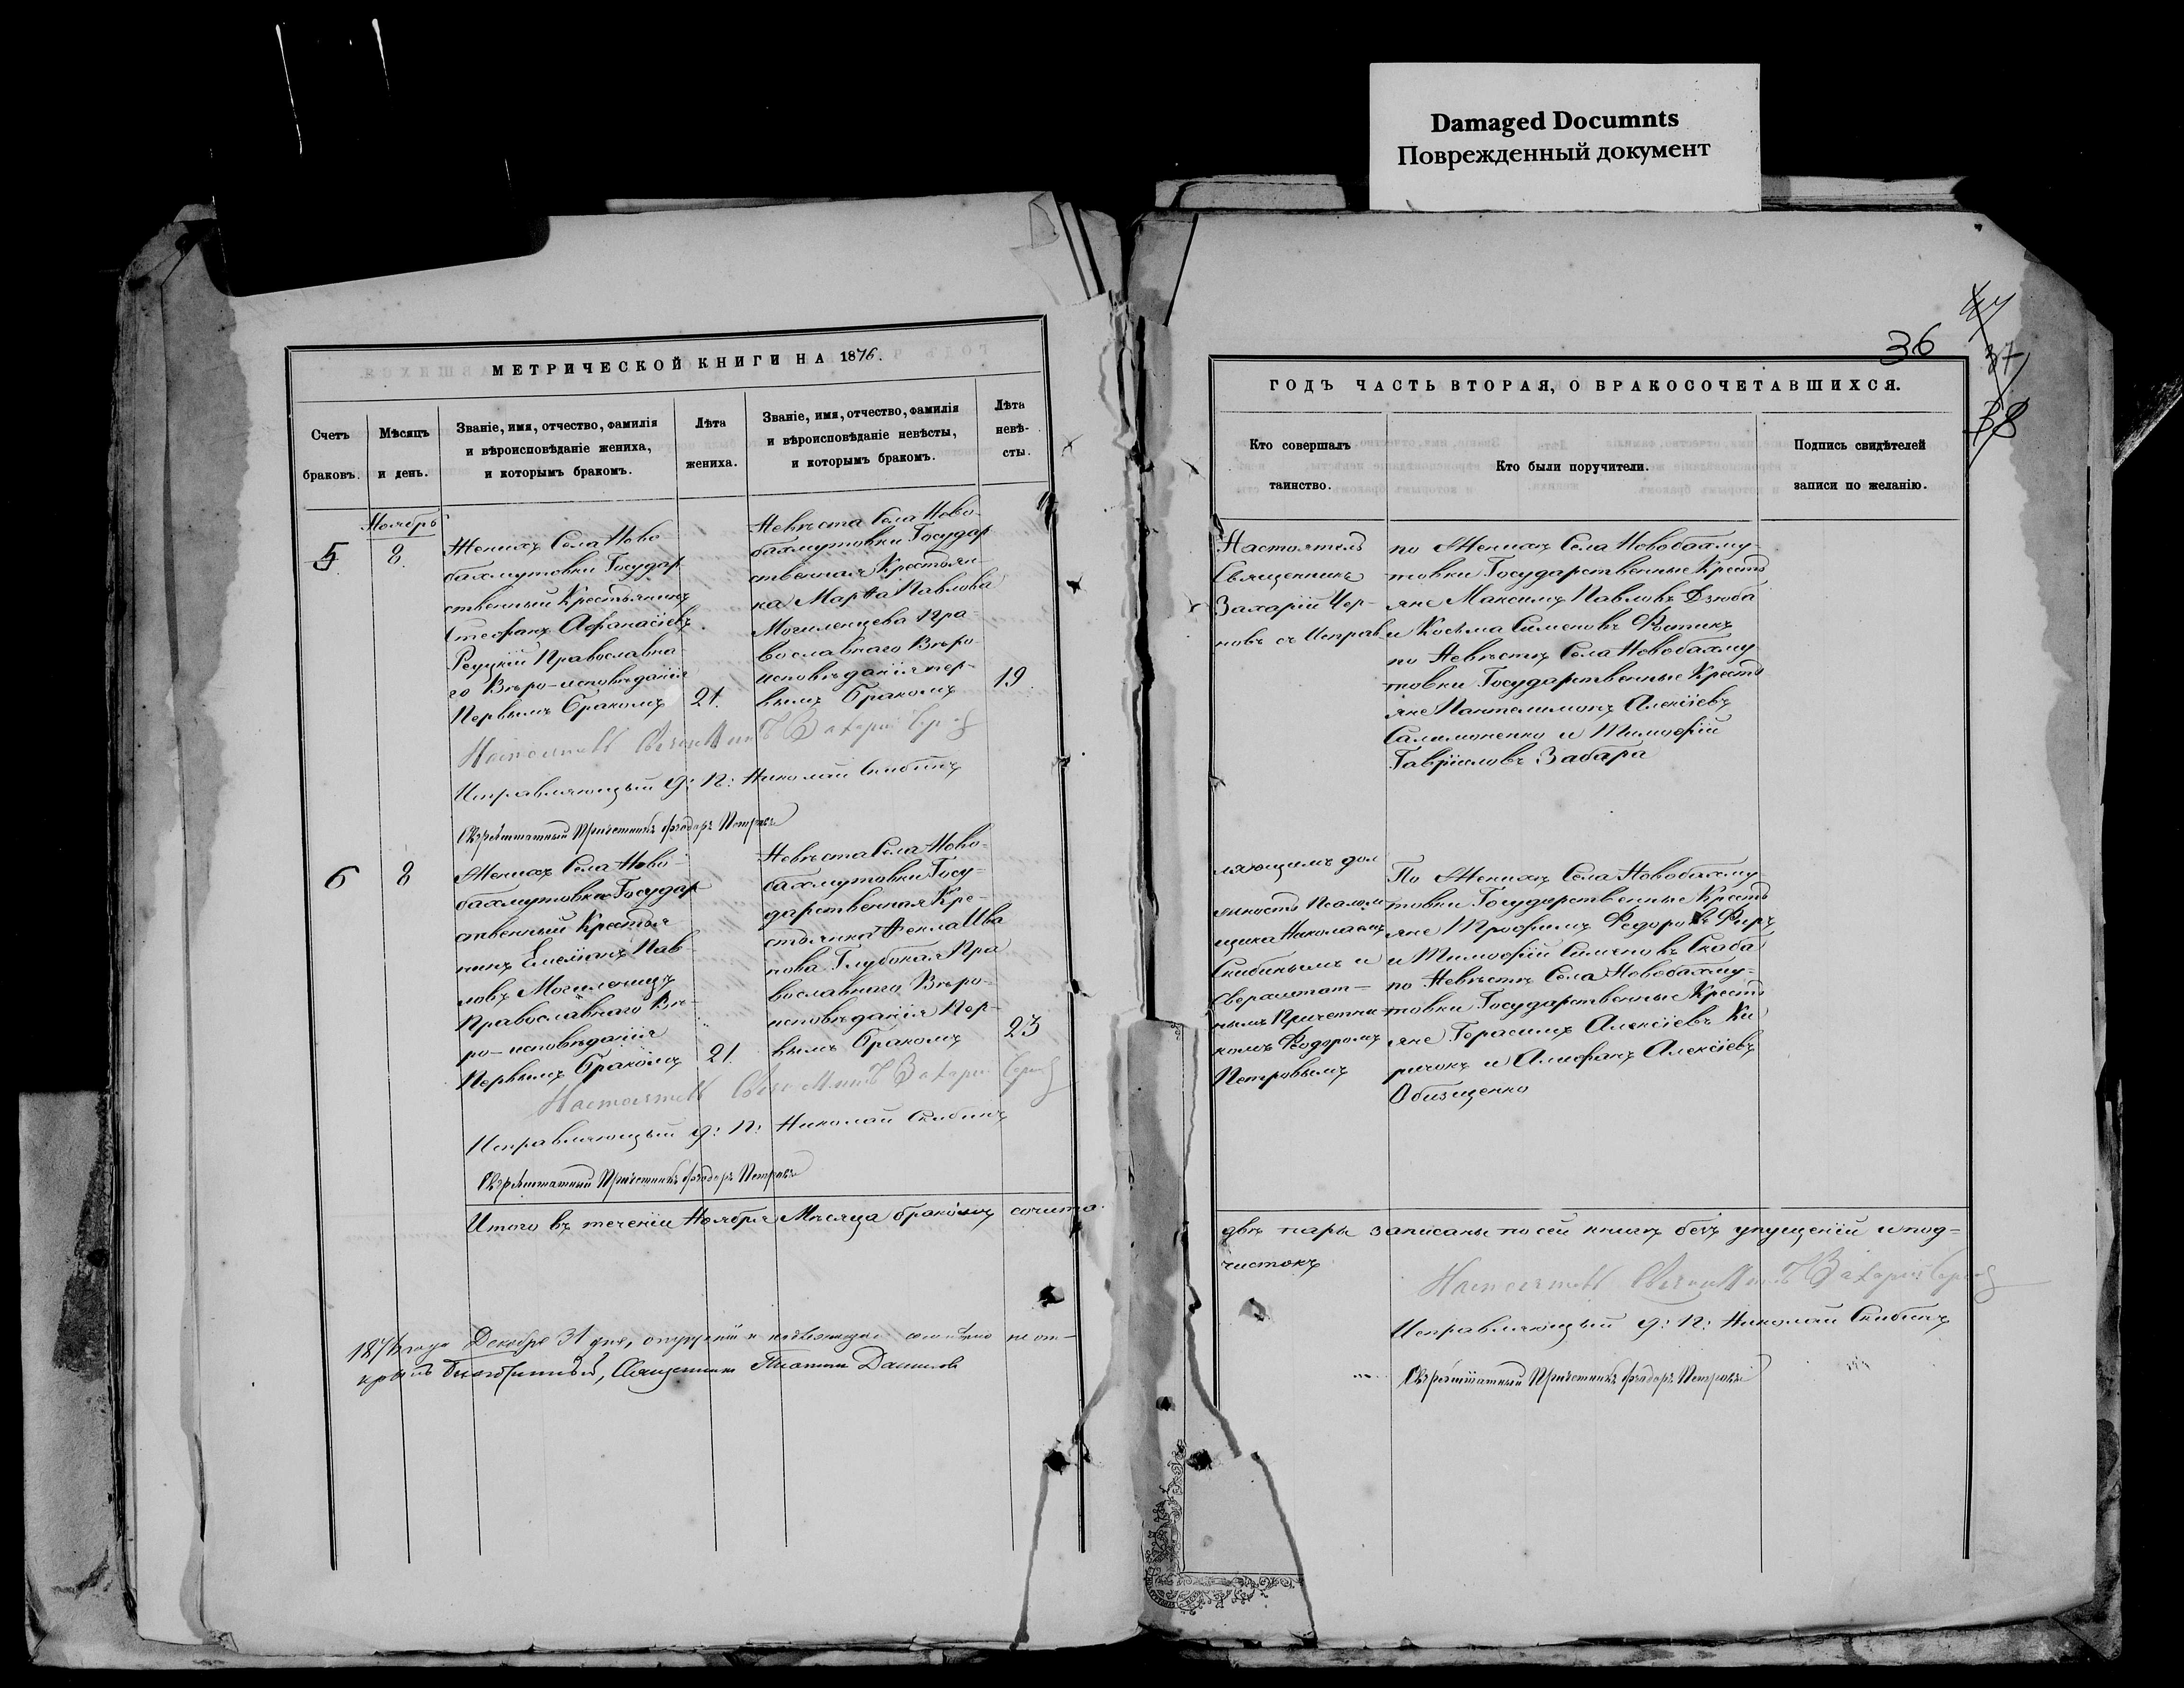 Damaged Documnts
Поврежденный документ
МЕТРИЧЕСКОЙ КНИГИ НА 1876.
Счетъ браковъ.
Мѣсяцъ и день.
Званіе, имя, отчество, фамилія
и вѣроисповѣданіе жениха,
и которымъ бракомъ.
Лѣта жениха.
Званіе, имя, отчество, фамилія
и вѣроисповѣданіе невѣсты,
и которымъ бракомъ.
Лѣта невѣ-
сты.
Ноябрь
5.
8.
Женихъ Села Ново
бахмутовки Государ
ственный Крестьянинъ
Стефанъ Афанасіевъ
Рецкій Православна
го Вѣро-исповѣданія
Первымъ бракомъ
21.
Невѣста Села Ново-
бахмутовки Государ
ственная Крестьян
ка Марѳа Павлова
Могиленцева Пра-
вославнаго Вѣро-
исповѣданія пер-
вымъ бракомъ
19.
Управляющій д: П: Николай Скибинъ
Сверхштатный Причетникъ Ѳеодоръ Петровъ
6
8
Женихъ Села Ново-
бахмутовки Государ
ственный Крестья
нинъ Емеліанъ Пав-
ловъ Могиленецъ
Православнаго Вѣ-
ро-исповѣданія
Первымъ бракомъ
21.
Невѣста Села Ново-
бахмутовки Госу-
дарственная Кре-
стьянка Ѳекла Ива
нова Глубокая Пра
вославнаго Вѣро-
исповѣданія Пер-
вымъ бракомъ
23
Исправляющій д: П: Николай Скибинъ
Сверхштатный Причетникъ Ѳеодоръ Петровъ
Итого въ теченіи Ноября Мѣсяца бракомъ сочета
Декабря 31 дня,
Священникъ Данилов
36
37
38
ГОДЪ ЧАСТЬ ВТОРАЯ, О БРАКОСОЧЕТАВШИХСЯ.
Кто совершалъ
таинство.
Кто были поручители.
Подпись свидѣтелей
записи по желанію.
Настоятель
Священникъ
Захарій Чер-
новъ съ Исправ
по Женихѣ Села Новобахму-
товки Государственные Кресть
яне Максимъ Павловъ Дзюба
и Косьма Сименовъ Фотикъ
по Невѣстѣ Села Новобахму
товки Государственные Кресть
яне Пантелимонъ Алексіевъ
Салимоненко и Тимофій
Гавріиловъ Забара
ляющимъ дол
жность Псалом
щика Николаемъ
Скибинымъ и
Сверхштат-
нымъ Причетни
комъ Ѳеодоромъ
Петровымъ
По Женихѣ Села Новобахму-
товки Государственные Кресть
яне Трофимъ Федоровъ Фиръ
и Тимофій Сименовъ Скаба
по Невѣстѣ Села Новобахму-
товки Государственные Кресть
яне Герасимъ Алексіевъ Ки
ричокъ и Алексіевъ
двѣ пары записаны по сей книгѣ безъ упущеній и под-
чистокъ
Исправляющій д: П: Николай Скибинъ
Сверхштатный Причетникъ Ѳеодоръ Петровъ